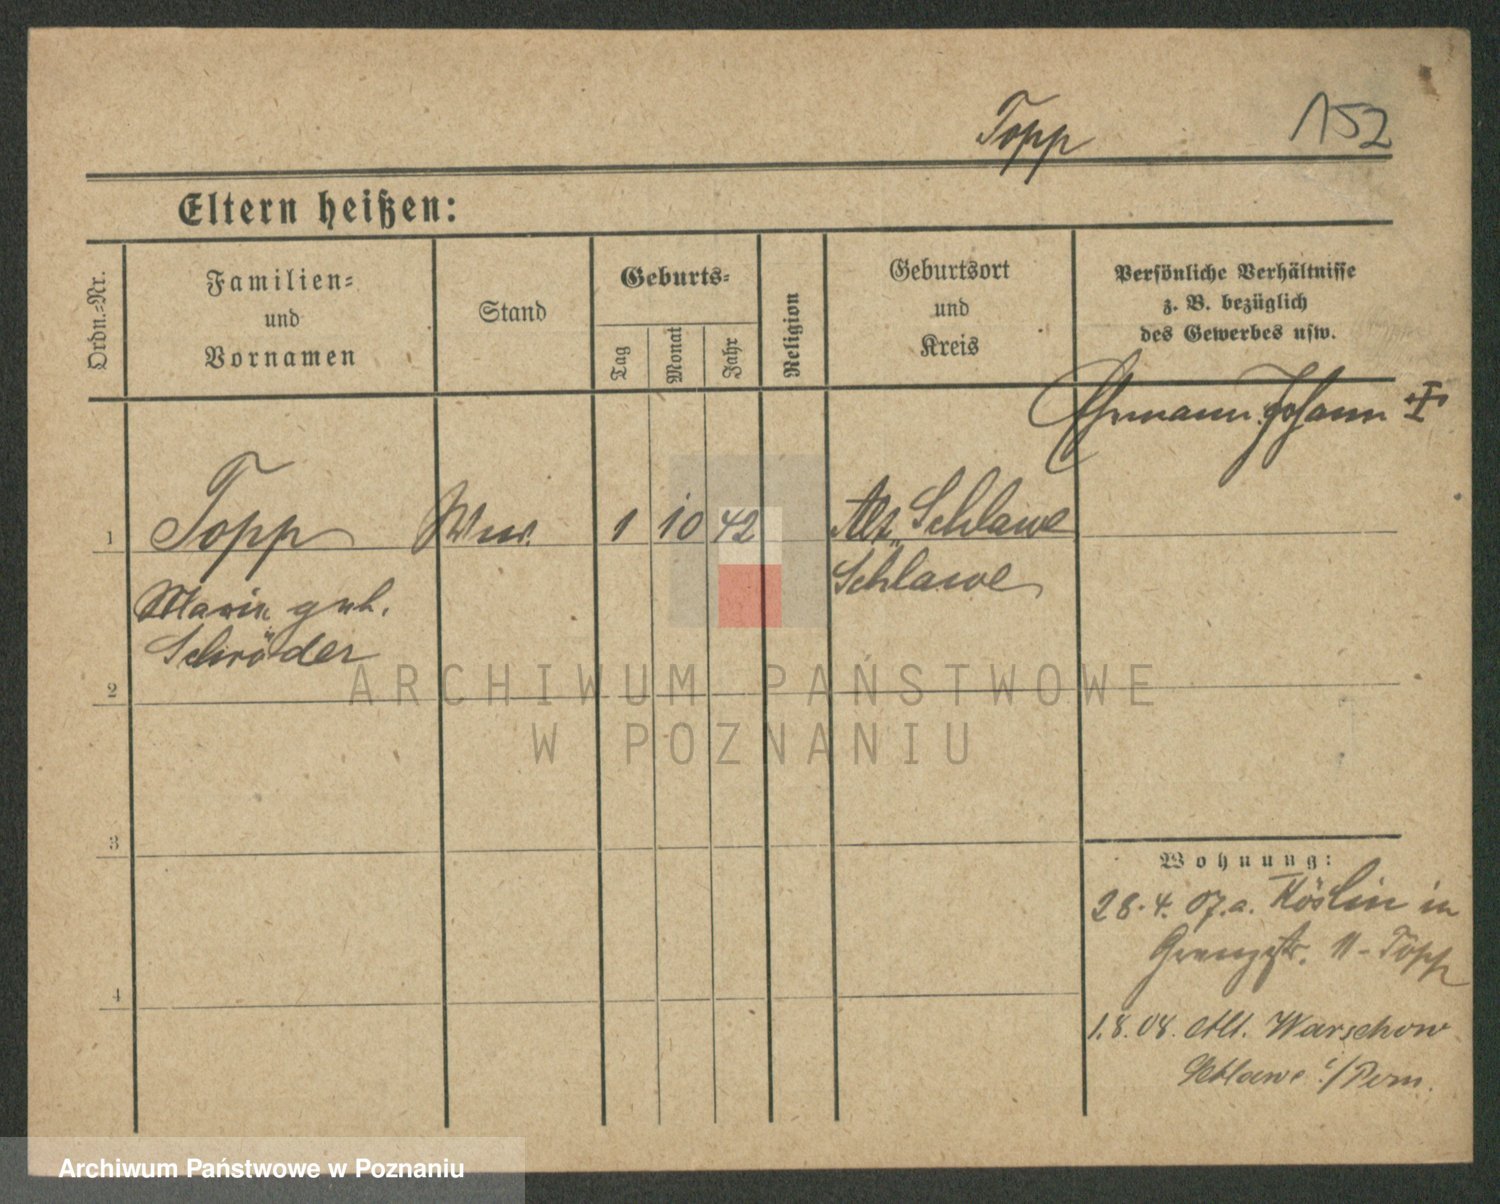 Topp
152
Eltern heißen:
Ordn.-Nr.
Familien-
und
Vornamen
Stand
Geburts-
Tag
Monat
Jahr
Religion
Geburtsort
und
Kreis
Persönliche Verhältnisse
z. B. bezüglich
des Gewerbes usw.
Ehemann Johann
1
Topp
Ww.
1
10
42
Alt Schlawe
Schlawe
Marie geb.
Schröder
2
3
4
Wohnung:
28.4.07. a. Köslin in
Grenzstr. 11 - Topp
1.8.08. Alt. Warschow
Schlawe i/Pom.
ARCHIWUM PAŃSTWOWE
W POZNANIU
Archiwum Państwowe w Poznaniu